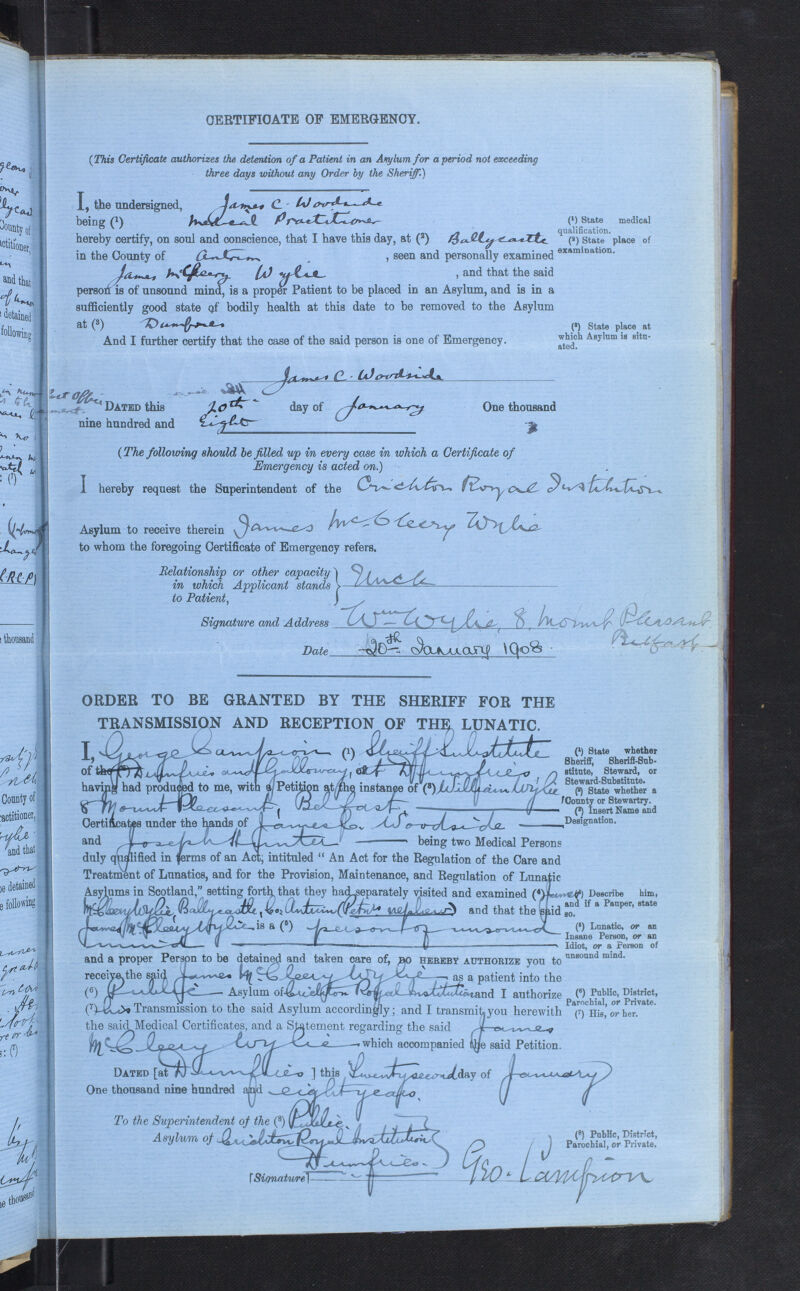 CERTIFICATE OF EMERGENCY.
(This Certificate authorizes the detention of a Patient in an Asylum for a period not exceeding
three days without any Order by the Sheriff.)
I, the undersigned, James C. Woodside
being (1) Medical Practitioner
hereby certify, on soul and conscience, that I have this day, at (2) Ballycastle
in the County of Antrim, seen and personally examined
James McCleery Wylie, and that the said
person is of unsound mind, is a proper Patient to be placed in an Asylum, and is in a
sufficiently good state of bodily health at this date to be removed to the Asylum
at (3) Dumfries
And I further certify that the case of the said person is one of Emergency.
(1) State medical
qualification.
(2) State place of
examination.
(3) State place at
which Asylum is situ-
ated.
James C. Woodside
DATED this 20th day of January One thousand
nine hundred and Eight
(The following should be filled up in every case in which a Certificate of
Emergency is acted on.)
I hereby request the Superintendent of the Crichton Royal Institution
Asylum to receive therein James McCleery Wylie
to whom the foregoing Certificate of Emergency refers.
Relationship or other capacity
in which Applicant stands
to Patient, } Uncle
Signature and Address Wm Wylie, 8, Mount Pleasant
Belfast
Date 20th January 1908
ORDER TO BE GRANTED BY THE SHERIFF FOR THE
TRANSMISSION AND RECEPTION OF THE LUNATIC.
I, George Campion (1) Sheriff Substitute
of the (2) Dumfries and Galloway, at Dumfries,
having had produced to me, with a Petition at the instance of (3) William Wylie
8 Mount Pleasant, Belfast,
Certificates under the hands of James C. Woodside
and Joseph Hunter being two Medical Persons
duly qualified in terms of an Act, intituled "An Act for the Regulation of the Care and
Treatment of Lunatics, and for the Provision, Maintenance, and Regulation of Lunatic
Asylums in Scotland," setting forth that they had separately visited and examined (4) James
McCleery Wylie, Ballycastle, Co. Antrim (Petrs nephew) and that the said
James McCleery Wylie is a (5) person of unsound
mind
and a proper Person to be detained and taken care of, DO HEREBY AUTHORIZE you to
receive the said James McCleery Wylie as a patient into the
(6) Public Asylum of Crichton Royal Institution and I authorize
(7) his Transmission to the said Asylum accordingly; and I transmit you herewith
the said Medical Certificates, and a Statement regarding the said James
McCleery Wylie which accompanied the said Petition.
DATED [at Dumfries ] this Twenty second day of January
One thousand nine hundred and eight years.
To the Superintendent of the (8) Public
Asylum of Crichton Royal Institution
Dumfries.
[Signature] Geo. Campion
(1) State whether
Sheriff, Sheriff-Sub-
stitute, Steward, or
Steward-Substitute.
(2) State whether a
County or Stewartry.
(3) Insert Name and
Designation.
(4) Describe him,
and if a Pauper, state
so.
(5) Lunatic, or an
Insane Person, or an
Idiot, or a Person of
unsound mind.
(6) Public, District,
Parochial, or Private.
(7) His, or her.
(8) Public, District,
Parochial, or Private.